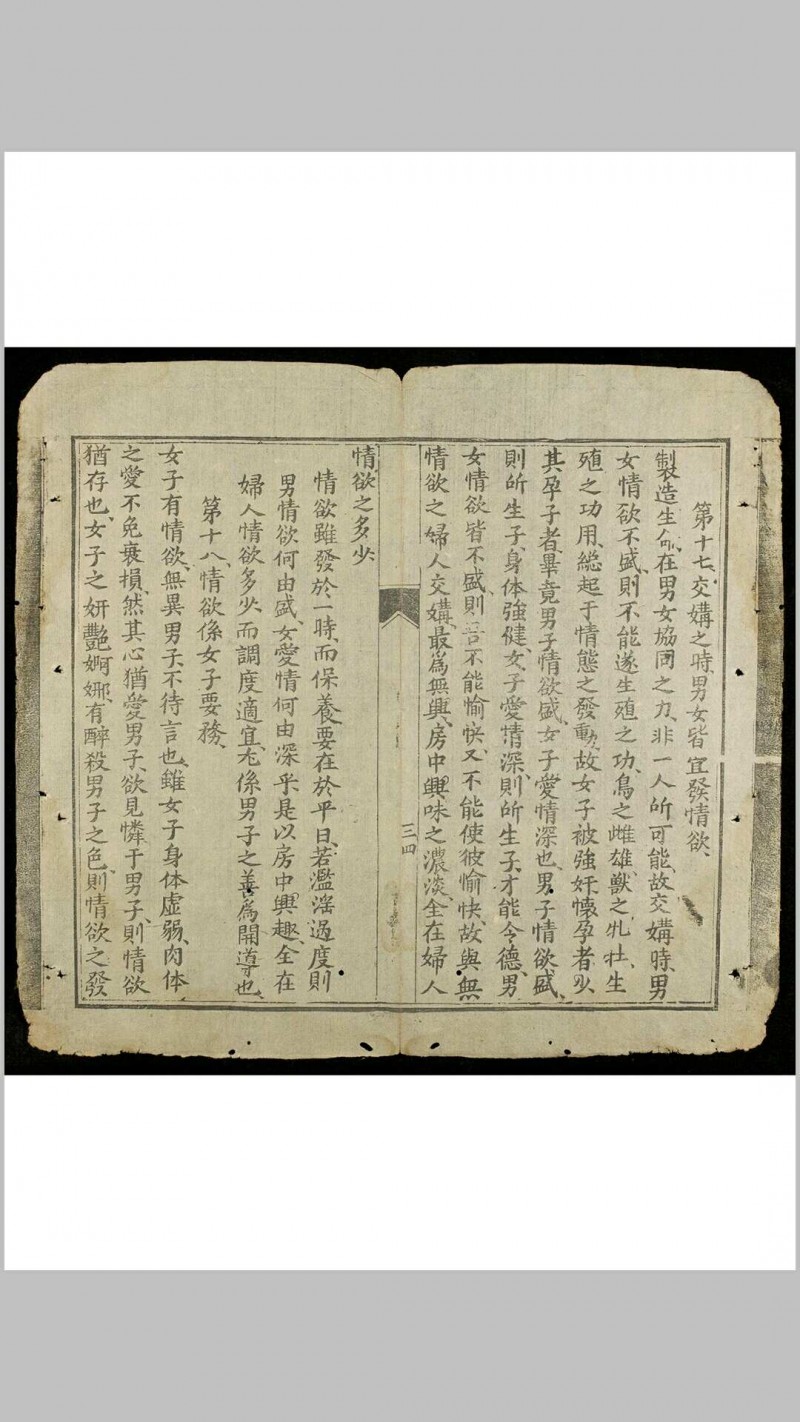 第十七、交媾之時男女皆宜發情欲、
製造生命、在男女協同之力、非一人所可能、故交媾時、男
女情欲不盛、則不能遂生殖之功、鳥之雌雄、獸之牝牡、生
殖之功用、総起于情態之發動、故女子被強奸懷孕者少、
其孕子者、畢竟男子情欲盛、女子愛情深也、男子情欲盛、
則所生子、身体強健、女子愛情深、則所生子、才能令德、男
女情欲皆不盛、則吾不能愉快、又不能使彼愉快、故與無
情欲之婦人交媾、最爲無興、房中興味之濃淡、全在婦人
三四
情欲之多少、
情欲雖發於一時、而保養要在於平日、若濫淫過度、則
男情欲何由盛、女愛情何由深乎、是以房中興趣、全在
婦人情欲多少、而調度適宜、尤係男子之善爲開導也、
第十八、情欲係女子要務、
女子有情欲、無異男子、不待言也、雖女子身体虛弱、肉体
之愛不免衰損、然其心猶愛男子、欲見憐于男子、則情欲
猶存也、女子之妍艷婀娜、有醉殺男子之色、則情欲之發